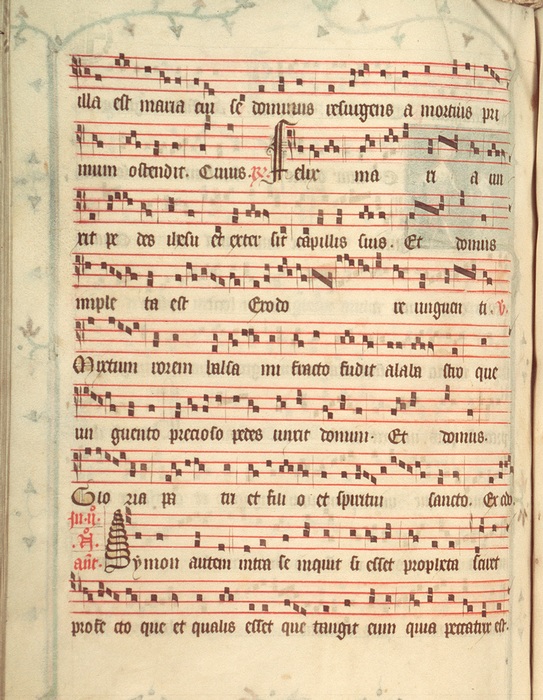 illa est maria cui se dominus resurgens a mortuis pri
mum ostendit. Cuius. R. Felix ma ri a un
xit pe des ihesu et exter sit capillis suis. Et domus
imple ta est Ex odo re unguen ti. V.
Mixtum rorem balsa mi fracto fudit alaba stro que
un guento precioso pedes unxit domini. Et domus.
Glo ria pa tri et fili o et spiritui sancto. Ex odo
In ii. Symon autem intra se inquit si esset propheta sciret
ant.
profe cto que et qualis esset que tangit eum quia peccatrix est.